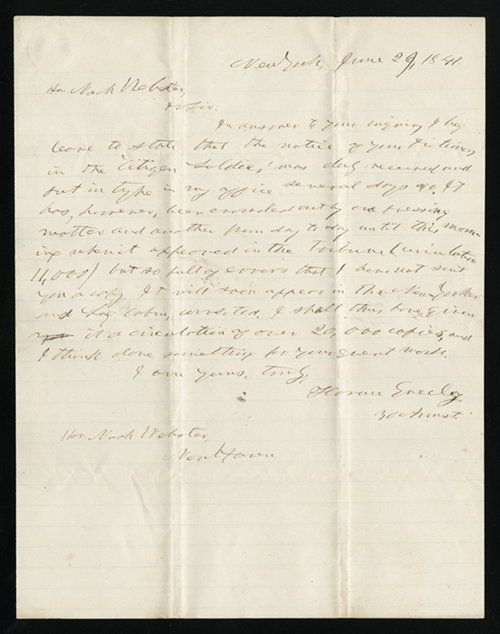 New York, June 29, 1841
Hon Noah Webster,
Dr Sir:
In answer to your inquiry I beg
leave to state that the notice of your Dictionary
in the "Citizen Soldier" was duly received and
put in type in my office several days ago. It
has, however, been crowded out by one pressing
matter and another from day to day until this morn-
ing when it appeared in the Tribune (circulation
11,000) but so full of errors that I have not sent
you a copy. It will soon appear in the New Yorker
and Log Cabin, corrected. I shall thus have given
it a circulation of over 20,000 copies, and
I think done something for your great work.
I am yours, truly,
Horace Greeley
30 Ann st.
Hon Noah Webster,
New Haven